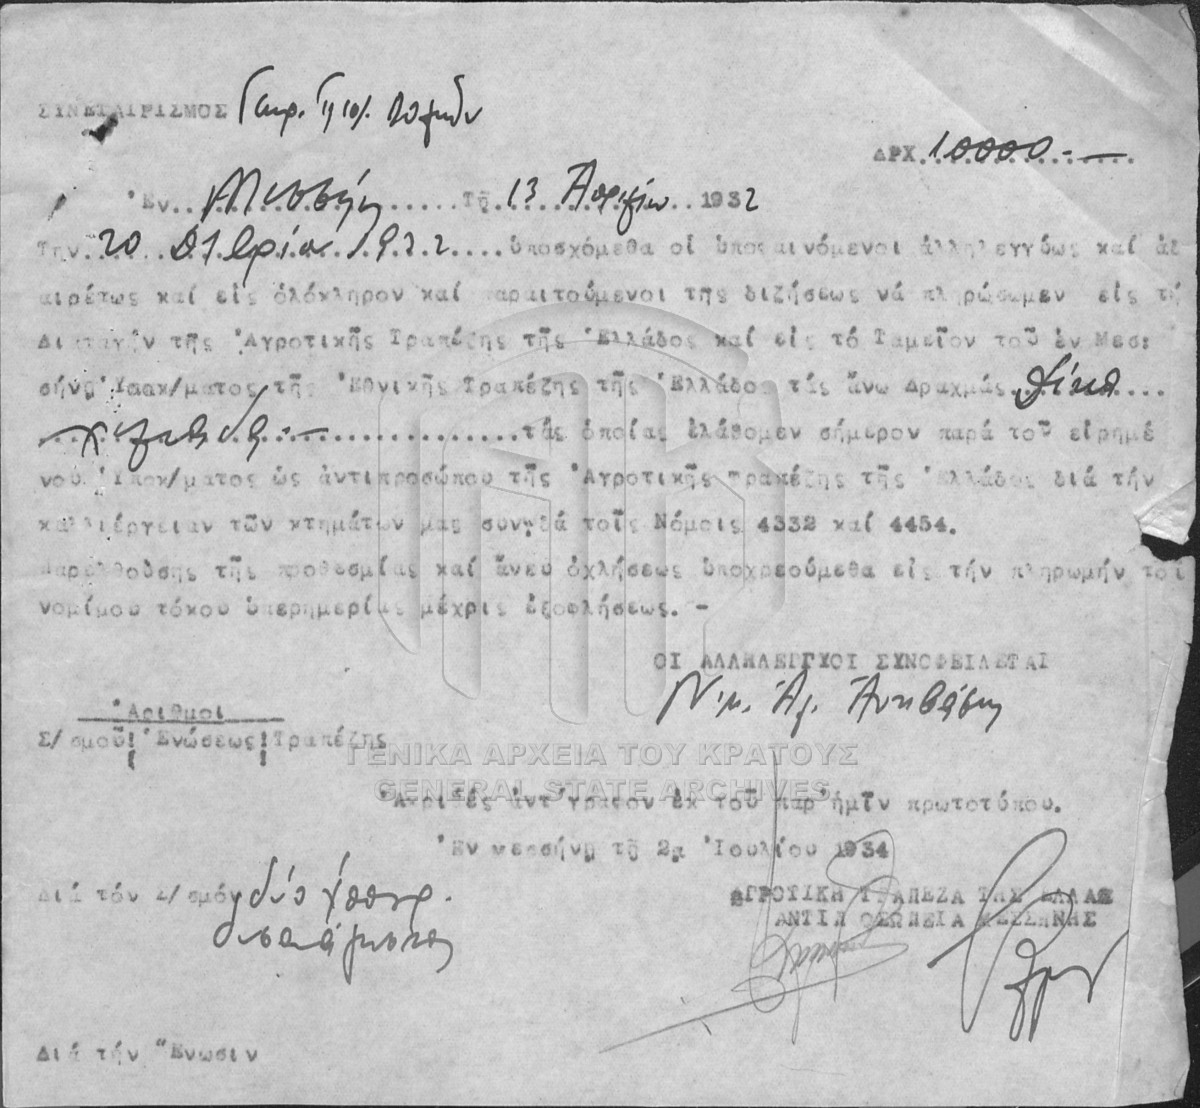 ΣΥΝΕΤΑΙΡΙΣΜΟΣ Γεωρ.
ΔΡΧ. 10000.-
Ἐν Μεσσήνῃ Τῇ 13 Ἀπριλίου 1932
Την 20 8/βρίου 1932 ὑποσχόμεθα οἱ ὑποφαινόμενοι ἀλληλεγγύως καί ἀδ
αιρέτως καί εἰς ὁλόκληρον καί παραιτούμενοι της διζήσεως νά πληρώσωμεν εἰς τή
Διαταγήν τῆς Ἀγροτικῆς Τραπέζης τῆς Ἑλλάδος καί εἰς τό Ταμεῖον τοῦ ἐν Μεσ:
σήνῃ Ὑποκ/ματος τῆς Ἐθνικῆς Τραπέζης τῆς Ἑλλάδος τάς ἄνω Δραχμάς δέκα
χιλιάδας.- τάς ὁποίας ἐλάβομεν σήμερον παρά τοῦ εἰρημέ
νου Ὑποκ/ματος ὡς ἀντιπροσώπου τῆς Ἀγροτικῆς Τραπέζης τῆς Ἑλλάδος διά τήν
καλλιέργειαν τῶν κτημάτων μας συνῳδά τοῖς Νόμοις 4332 καί 4454.
Παρελθούσης τῆς προθεσμίας καί ἄνευ ὀχλήσεως ὑποχρεούμεθα εἰς τήν πληρωμήν τοῦ
νομίμου τόκου ὑπερημερίας μέχρις ἐξοφλήσεως. -
ΟΙ ΑΛΛΗΛΕΓΓΥΟΙ ΣΥΝΟΦΕΙΛΕΤΑΙ
Νικ. Ἀγ.
Ἀριθμοί
Σ/σμοῦ! Ἑνώσεως! Τραπέζης
ΓΕΝΙΚΑ ΑΡΧΕΙΑ ΤΟΥ ΚΡΑΤΟΥΣ
GENERAL STATE ARCHIVES
Ἀκριβές ἀντίγραφον ἐκ τοῦ παρ' ἡμῖν πρωτοτύπου.
Ἐν Μεσσήνῃ τῇ 2ᾳ Ἰουλίου 1934
Διά τόν Σ/σμόν δύο
ΑΓΡΟΤΙΚΗ ΤΡΑΠΕΖΑ ΤΗΣ ΕΛΛΑΔΣ
ΑΝΤΙΠ ΟΣΩΠΕΙΑ ΜΕΣΣΗΝΗΣ
Διά τήν Ἕνωσιν